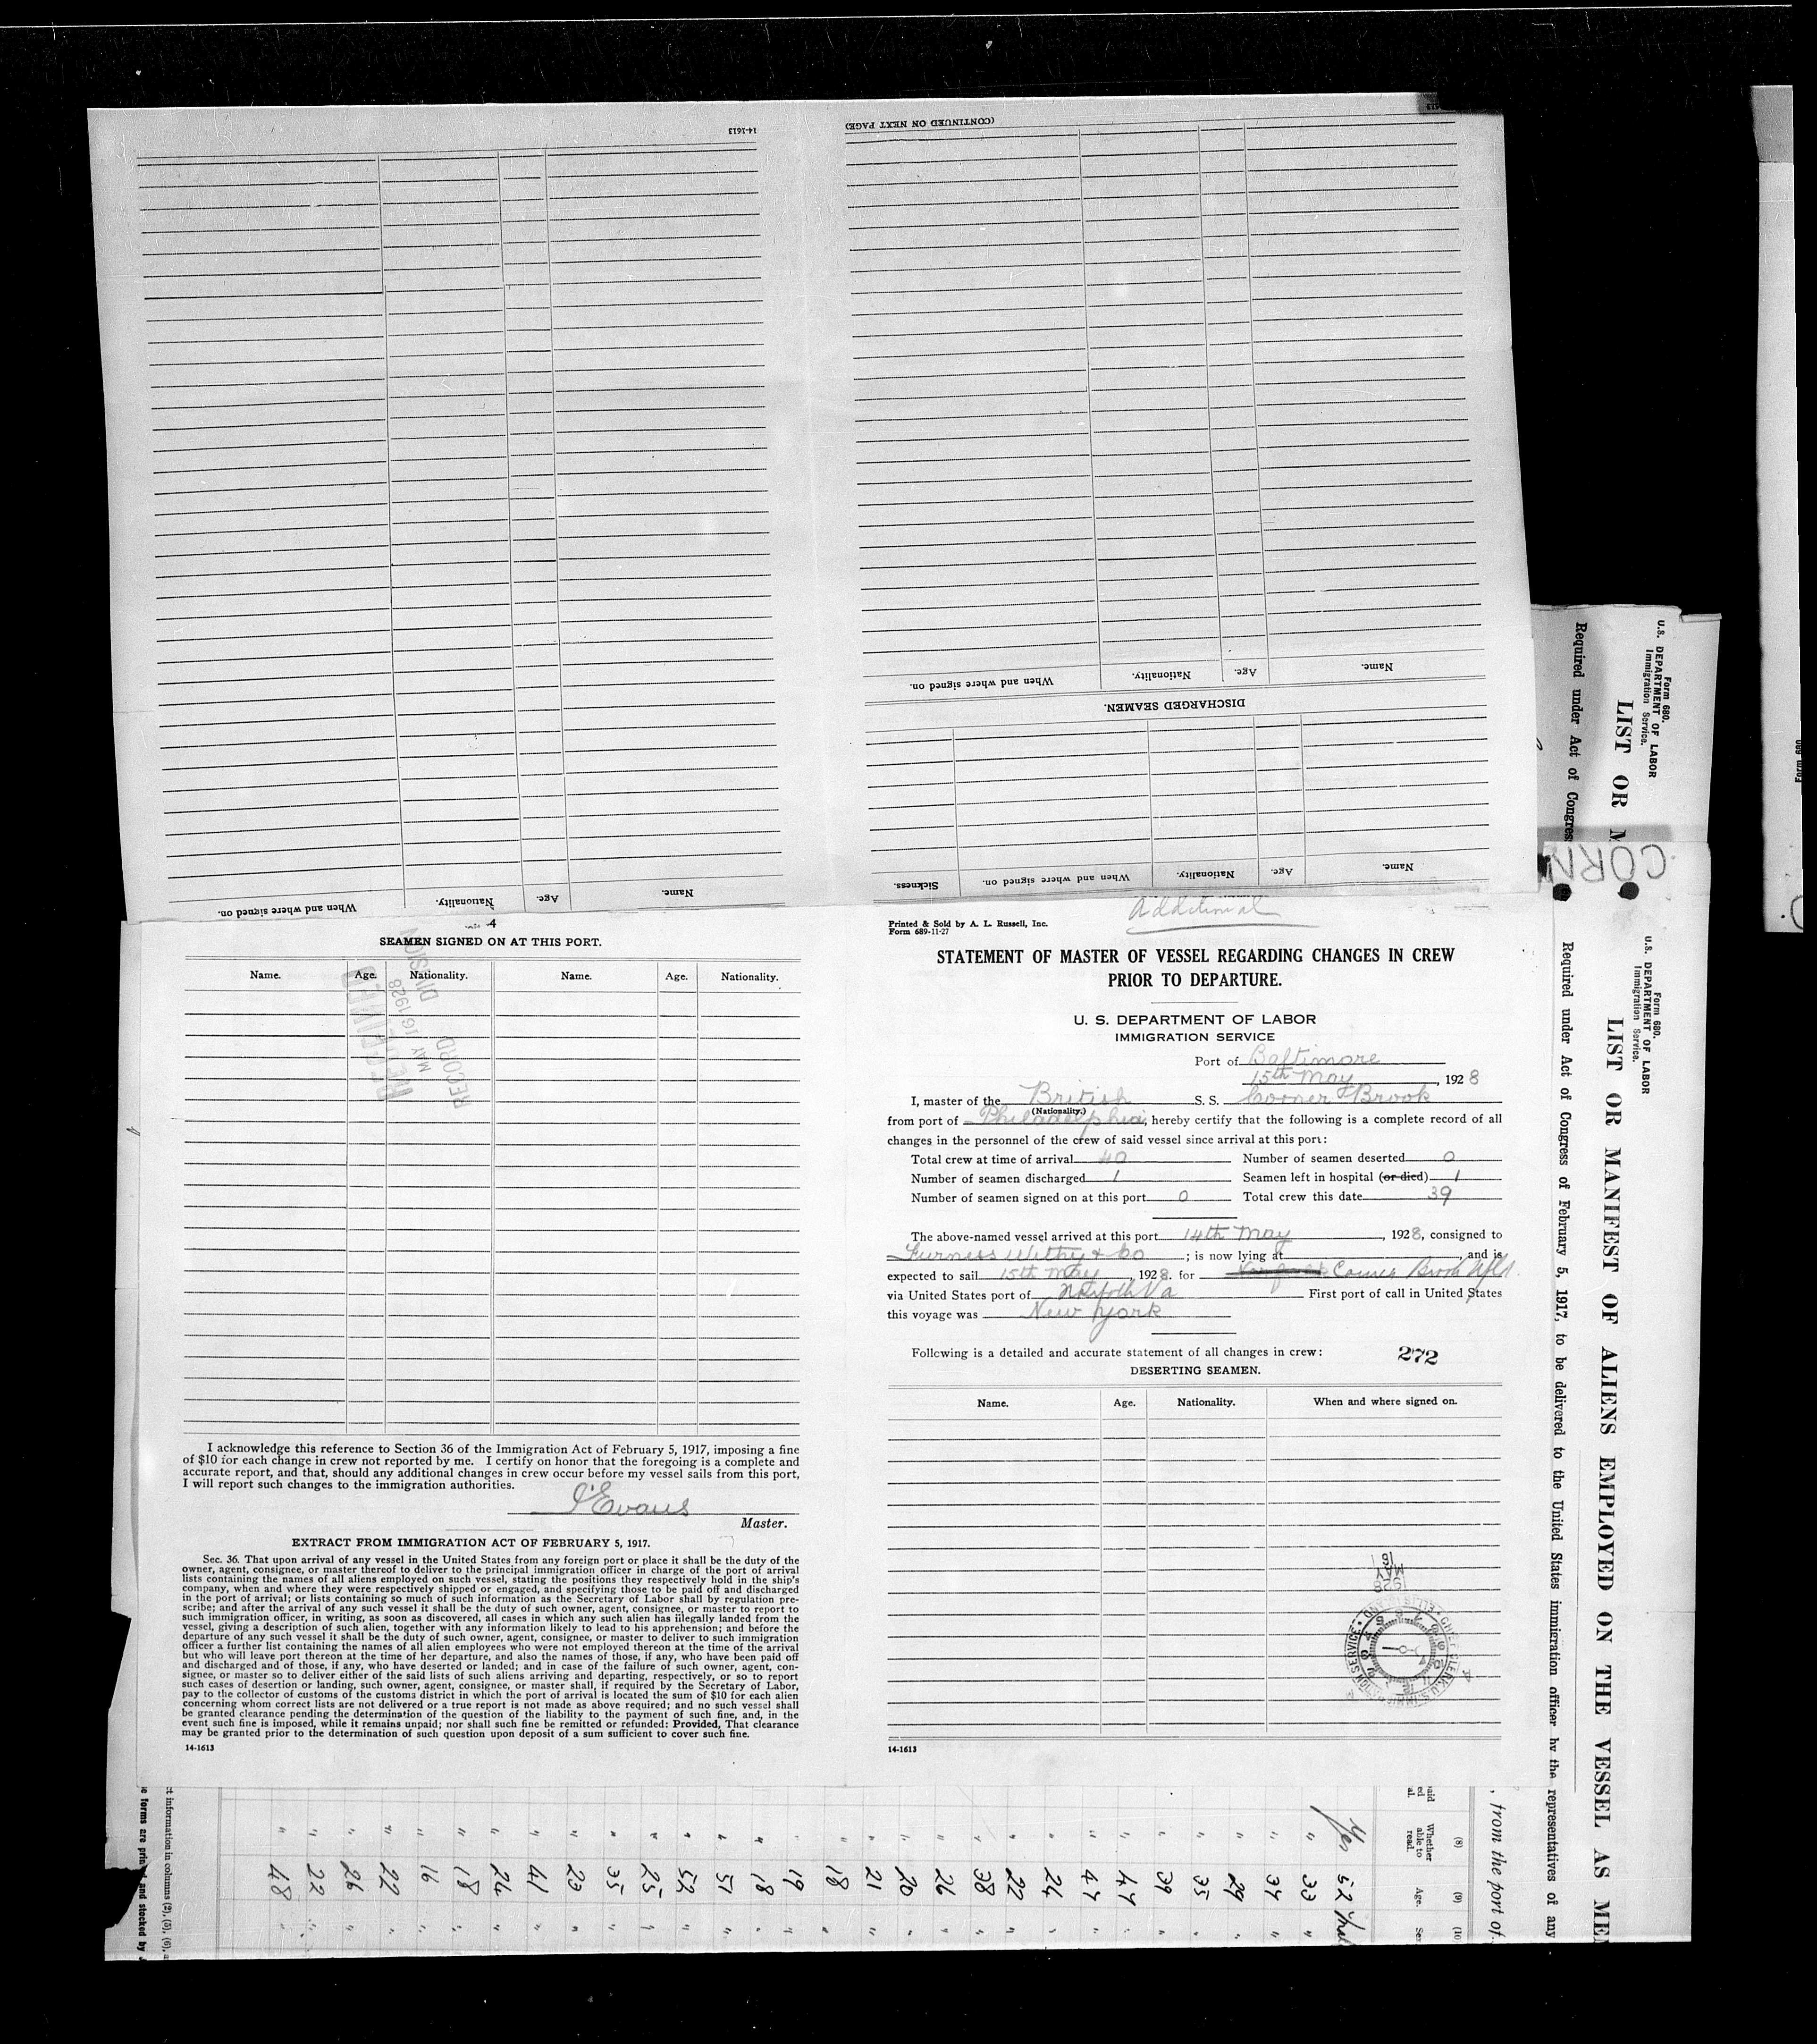 14-1613
(CONTINUED ON NEXT PAGE)
When and where signed on. Nationality. Age. Name.
DISCHARGED SEAMEN.
Sickness. When and where signed on. Nationality. Age. Name.
When and where signed on. Nationality. Age. Name.
4
SEAMEN SIGNED ON AT THIS PORT.
Name. Age. Nationality. Name. Age. Nationality.
RECEIVED
MAY 16 1928
RECORD DIVISION
I acknowledge this reference to Section 36 of the Immigration Act of February 5, 1917, imposing a fine
of $10 for each change in crew not reported by me. I certify on honor that the foregoing is a complete and
accurate report, and that, should any additional changes in crew occur before my vessel sails from this port,
I will report such changes to the immigration authorities.
Evans
Master.
EXTRACT FROM IMMIGRATION ACT OF FEBRUARY 5, 1917.
Sec. 36. That upon arrival of any vessel in the United States from any foreign port or place it shall be the duty of the
owner, agent, consignee, or master thereof to deliver to the principal immigration officer in charge of the port of arrival
lists containing the names of all aliens employed on such vessel, stating the positions they respectively hold in the ship's
company, when and where they were respectively shipped or engaged, and specifying those to be paid off and discharged
in the port of arrival; or lists containing so much of such information as the Secretary of Labor shall by regulation pre-
scribe; and after the arrival of any such vessel it shall be the duty of such owner, agent, consignee, or master to report to
such immigration officer, in writing, as soon as discovered, all cases in which any such alien has illegally landed from the
vessel, giving a description of such alien, together with any information likely to lead to his apprehension; and before the
departure of any such vessel it shall be the duty of such owner, agent, consignee, or master to deliver to such immigration
officer a further list containing the names of all alien employees who were not employed thereon at the time of the arrival
but who will leave port thereon at the time of her departure, and also the names of those, if any, who have been paid off
and discharged and of those, if any, who have deserted or landed; and in case of the failure of such owner, agent, con-
signee, or master so to deliver either of the said lists of such aliens arriving and departing, respectively, or so to report
such cases of desertion or landing, such owner, agent, consignee, or master shall, if required by the Secretary of Labor,
pay to the collector of customs of the customs district in which the port of arrival is located the sum of $10 for each alien
concerning whom correct lists are not delivered or a true report is not made as above required; and no such vessel shall
be granted clearance pending the determination of the question of the liability to the payment of such fine, and, in the
event such fine is imposed, while it remains unpaid; nor shall such fine be remitted or refunded: Provided, That clearance
may be granted prior to the determination of such question upon deposit of a sum sufficient to cover such fine.
14-1613
Additional
Printed & Sold by A. L. Russell, Inc.
Form 689-11-27
STATEMENT OF MASTER OF VESSEL REGARDING CHANGES IN CREW
PRIOR TO DEPARTURE.
U. S. DEPARTMENT OF LABOR
IMMIGRATION SERVICE
Port of Baltimore
15th May, 1928
I, master of the British S. S. Corner Brook
(Nationality.)
from port of Philadelphia, hereby certify that the following is a complete record of all
changes in the personnel of the crew of said vessel since arrival at this port:
Total crew at time of arrival 40 Number of seamen deserted 0
Number of seamen discharged 1 Seamen left in hospital (or died) 1
Number of seamen signed on at this port 0 Total crew this date 39
The above-named vessel arrived at this port 14th May, 1928, consigned to
Furness Withy & Co; is now lying at, and is
expected to sail 15th May, 1928. for Corner Brook Nfld.
via United States port of Norfolk Va First port of call in United States
this voyage was New York
Following is a detailed and accurate statement of all changes in crew: 272
DESERTING SEAMEN.
Name. Age. Nationality. When and where signed on.
1928
MAY
16
14-1613
Form 680.
U.S. DEPARTMENT OF LABOR
Immigration Service.
LIST OR M
Required under Act of Congres
CORN
Form 680.
U.S. DEPARTMENT OF LABOR
Immigration Service.
LIST OR MANIFEST OF ALIENS EMPLOYED ON THE VESSEL AS MEM
Required under Act of Congress of February 5, 1917, to be delivered to the United States immigration officer by the representatives of any
, from the port of
(8) (9) (10)
Whether able to read. Age. Sex
Yes 52
" 33 "
" 37 "
" 29 "
" 35 "
" 39 "
" 47 "
" 47 "
" 24 "
" 22 "
" 38 "
" 26 "
" 20 "
" 21 "
" 18 "
" 19 "
" 18 "
" 51 "
" 52 "
" 25 "
" 35 "
" 23 "
" 41 "
" 26 "
" 18 "
" 16 "
" 22 "
" 26 "
" 22 "
" 48 "
t information in columns (2), (5), (6),
Form 680